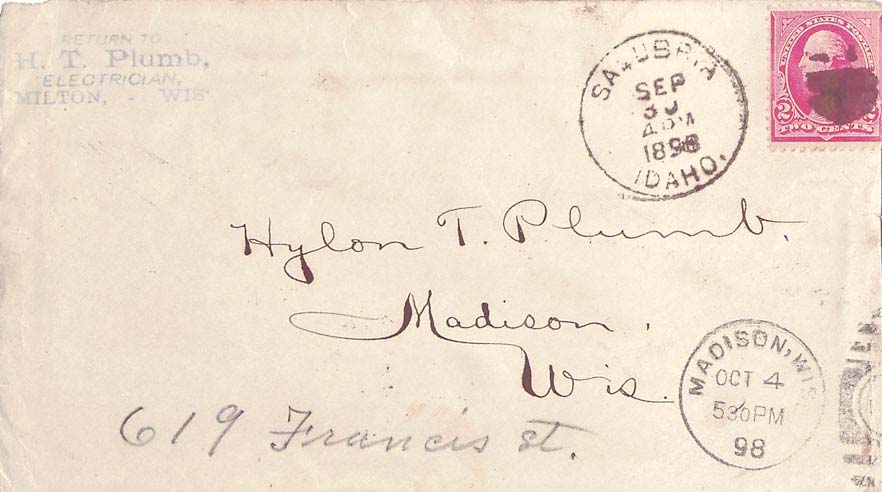 RETURN TO
H. T. Plumb,
ELECTRICIAN,
MILTON, - WIS
SALUBRIA
SEP
30
4 PM
1898
IDAHO.
UNITED STATES POSTAGE
2 2
TWO CENTS
Hylon T. Plumb.
Madison,
Wis.
619 Francis st.
MADISON, WIS.
OCT 4
530PM
98